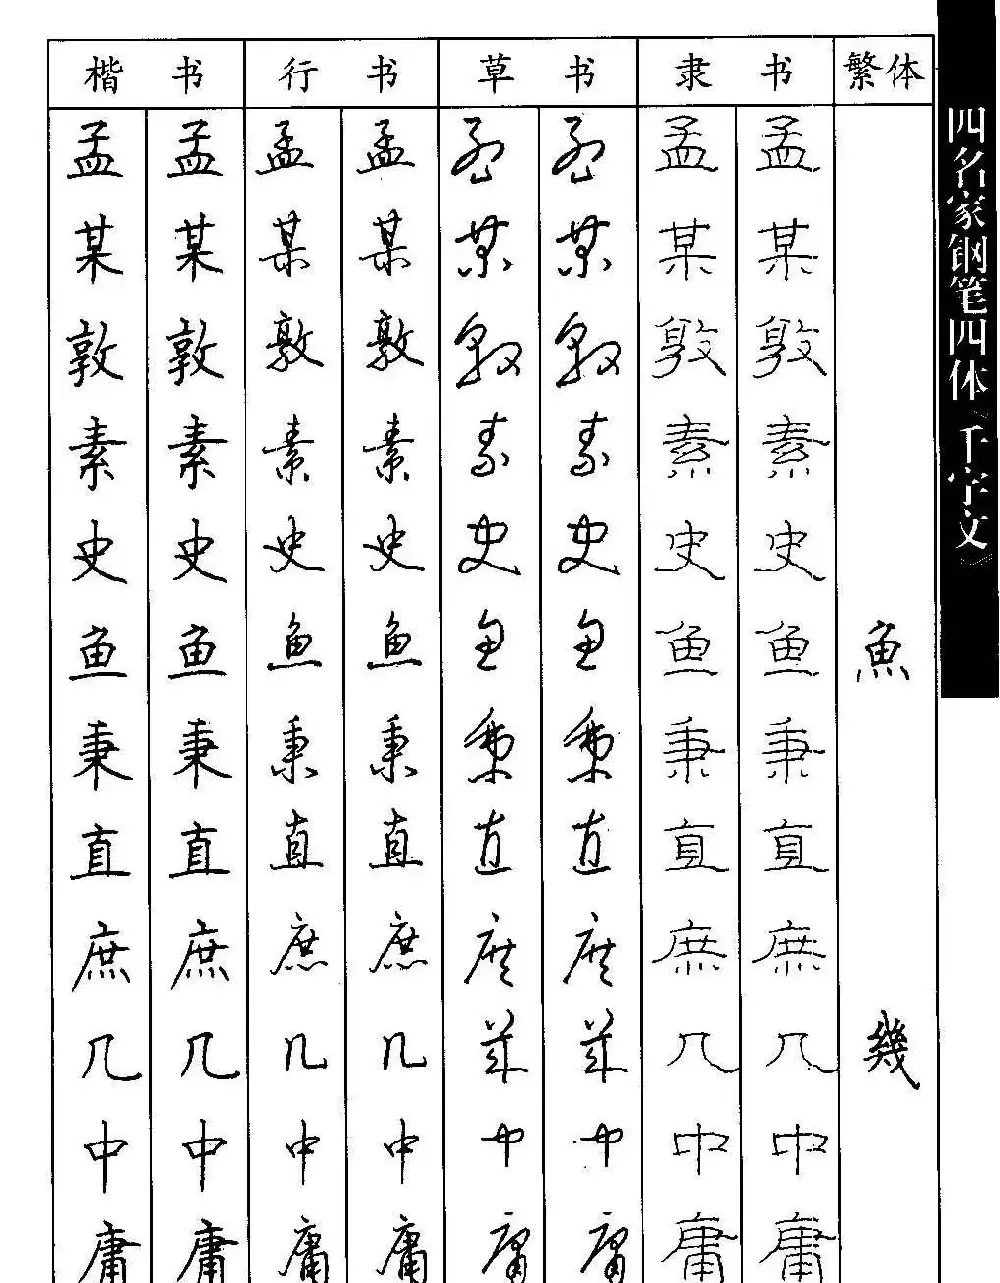 楷书 行书 草书 隶书 繁体
孟 孟 孟 孟 孟 孟 孟 孟
某 某 某 某 某 某 某 某
敦 敦 敦 敦 敦 敦 敦 敦
素 素 素 素 素 素 素 素
史 史 史 史 史 史 史 史
鱼 鱼 鱼 鱼 鱼 鱼 鱼 鱼 魚
秉 秉 秉 秉 秉 秉 秉 秉
直 直 直 直 直 直 直 直
庶 庶 庶 庶 庶 庶 庶 庶
几 几 几 几 幾 幾 几 几 幾
中 中 中 中 中 中 中 中
庸 庸 庸 庸 庸 庸 庸 庸
四名家钢笔四体《千字文》